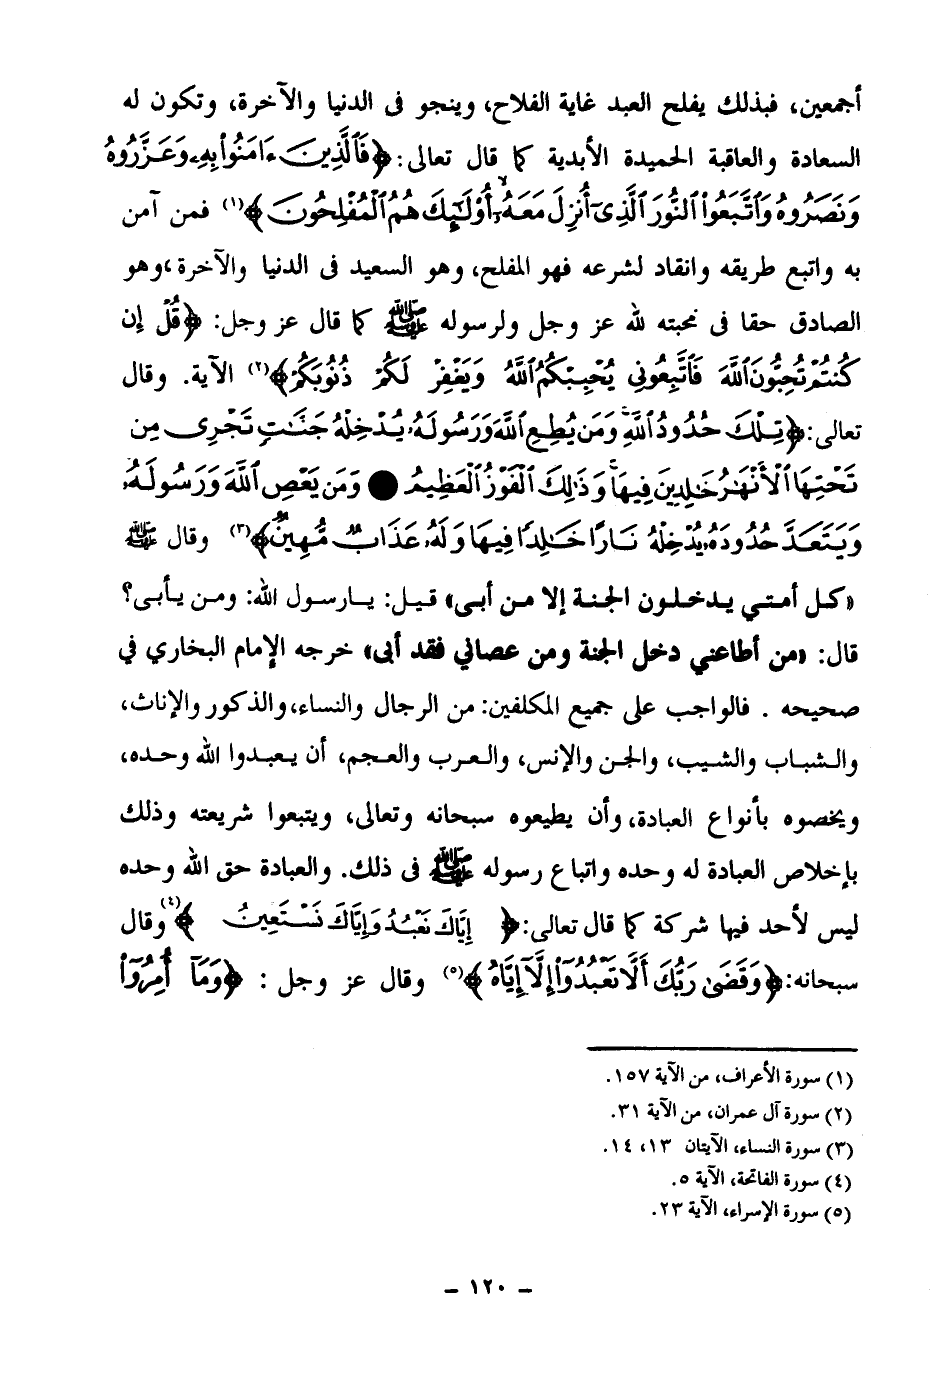 أجمعين، فبذلك يفلح العبد غاية الفلاح، وينجو فى الدنيا والآخرة، وتكون له
السعادة والعاقبة الحميدة الأبدية كما قال تعالى: ﴿فَٱلَّذِينَ ءَامَنُوا۟ بِهِۦ وَعَزَّرُوهُ
وَنَصَرُوهُ وَٱتَّبَعُوا۟ ٱلنُّورَ ٱلَّذِىٓ أُنزِلَ مَعَهُۥٓۙ أُو۟لَٰٓئِكَ هُمُ ٱلْمُفْلِحُونَ﴾(١) فمن آمن
به واتبع طريقه وانقاد لشرعه فهو المفلح، وهو السعيد فى الدنيا والآخرة، وهو
الصادق حقا فى محبته لله عز وجل ولرسوله ﷺ كما قال عز وجل: ﴿قُلْ إِن
كُنتُمْ تُحِبُّونَ ٱللَّهَ فَٱتَّبِعُونِى يُحْبِبْكُمُ ٱللَّهُ وَيَغْفِرْ لَكُمْ ذُنُوبَكُمْ﴾(٢) الآية. وقال
تعالى: ﴿تِلْكَ حُدُودُ ٱللَّهِۚ وَمَن يُطِعِ ٱللَّهَ وَرَسُولَهُۥ يُدْخِلْهُ جَنَّٰتٍ تَجْرِى مِن
تَحْتِهَا ٱلْأَنْهَٰرُ خَٰلِدِينَ فِيهَاۚ وَذَٰلِكَ ٱلْفَوْزُ ٱلْعَظِيمُ ● وَمَن يَعْصِ ٱللَّهَ وَرَسُولَهُۥ
وَيَتَعَدَّ حُدُودَهُۥ يُدْخِلْهُ نَارًا خَٰلِدًا فِيهَا وَلَهُۥ عَذَابٌ مُّهِينٌ﴾(٣) وقال ﷺ
«كل أمتي يدخلون الجنة إلا من أبى» قيل: يارسول الله: ومن يأبى؟
قال: «من أطاعني دخل الجنة ومن عصاني فقد أبى» خرجه الإمام البخاري في
صحيحه . فالواجب على جميع المكلفين: من الرجال والنساء، والذكور والإناث،
والشباب والشيب، والجن والإنس، والعرب والعجم، أن يعبدوا الله وحده،
ويخصوه بأنواع العبادة، وأن يطيعوه سبحانه وتعالى، ويتبعوا شريعته وذلك
بإخلاص العبادة له وحده واتباع رسوله ﷺ فى ذلك. والعبادة حق الله وحده
ليس لأحد فيها شركة كما قال تعالى: ﴿ إِيَّاكَ نَعْبُدُ وَإِيَّاكَ نَسْتَعِينُ ﴾(٤) وقال
سبحانه: ﴿وَقَضَىٰ رَبُّكَ أَلَّا تَعْبُدُوٓا۟ إِلَّآ إِيَّاهُ﴾(٥) وقال عز وجل : ﴿وَمَآ أُمِرُوٓا۟
(١) سورة الأعراف، من الآية ١٥٧.
(٢) سورة آل عمران، من الآية ٣١.
(٣) سورة النساء، الآيتان ١٣، ١٤.
(٤) سورة الفاتحة، الآية ٥.
(٥) سورة الإسراء، الآية ٢٣.
- ١٢٠ -